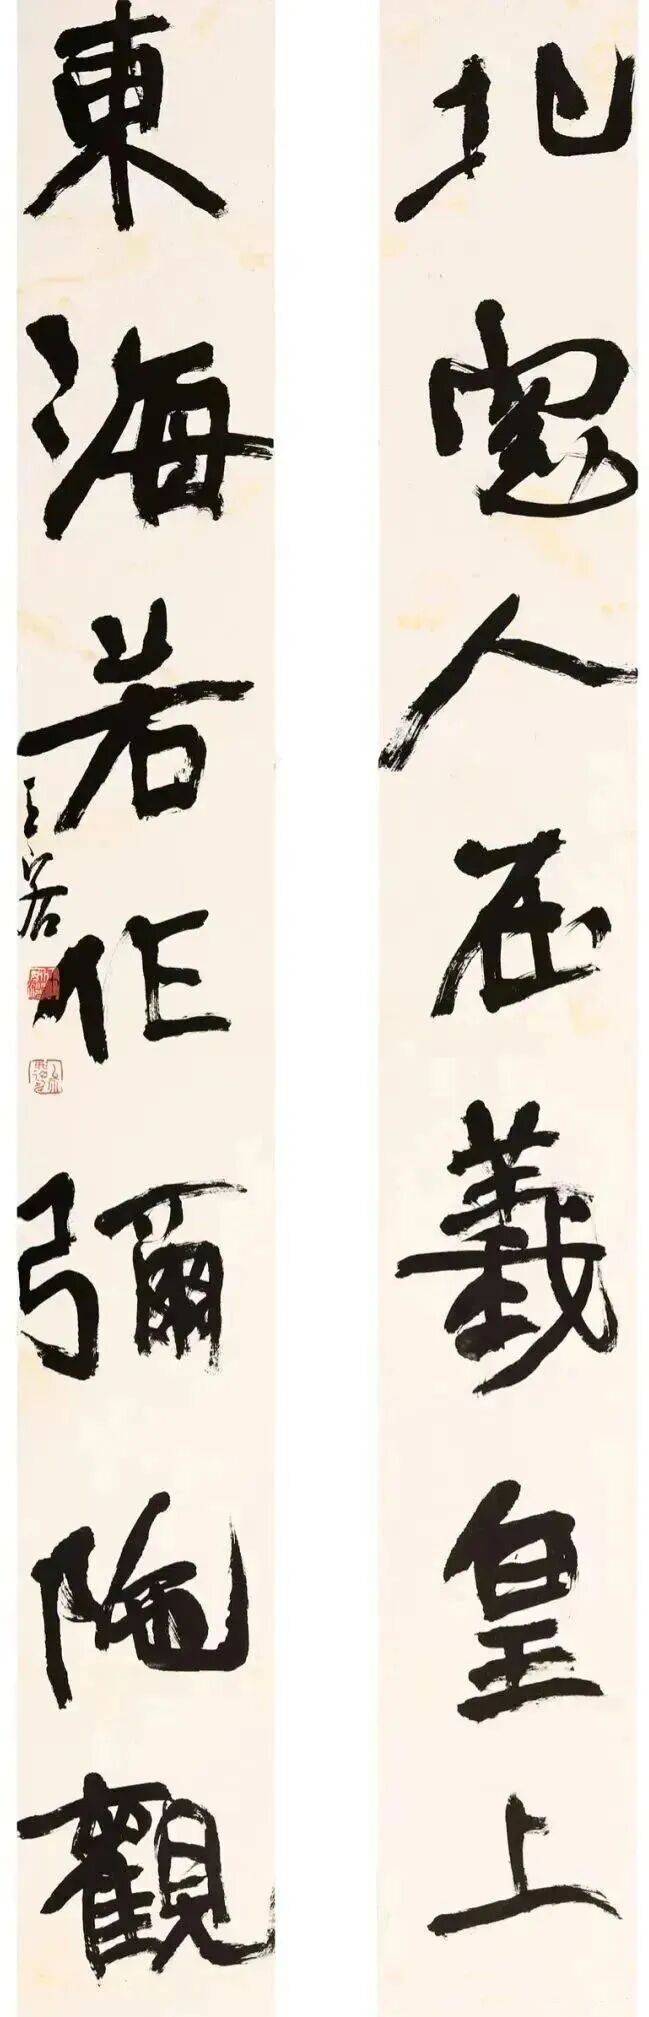 北窗人在羲皇上
東海若作彌陀觀